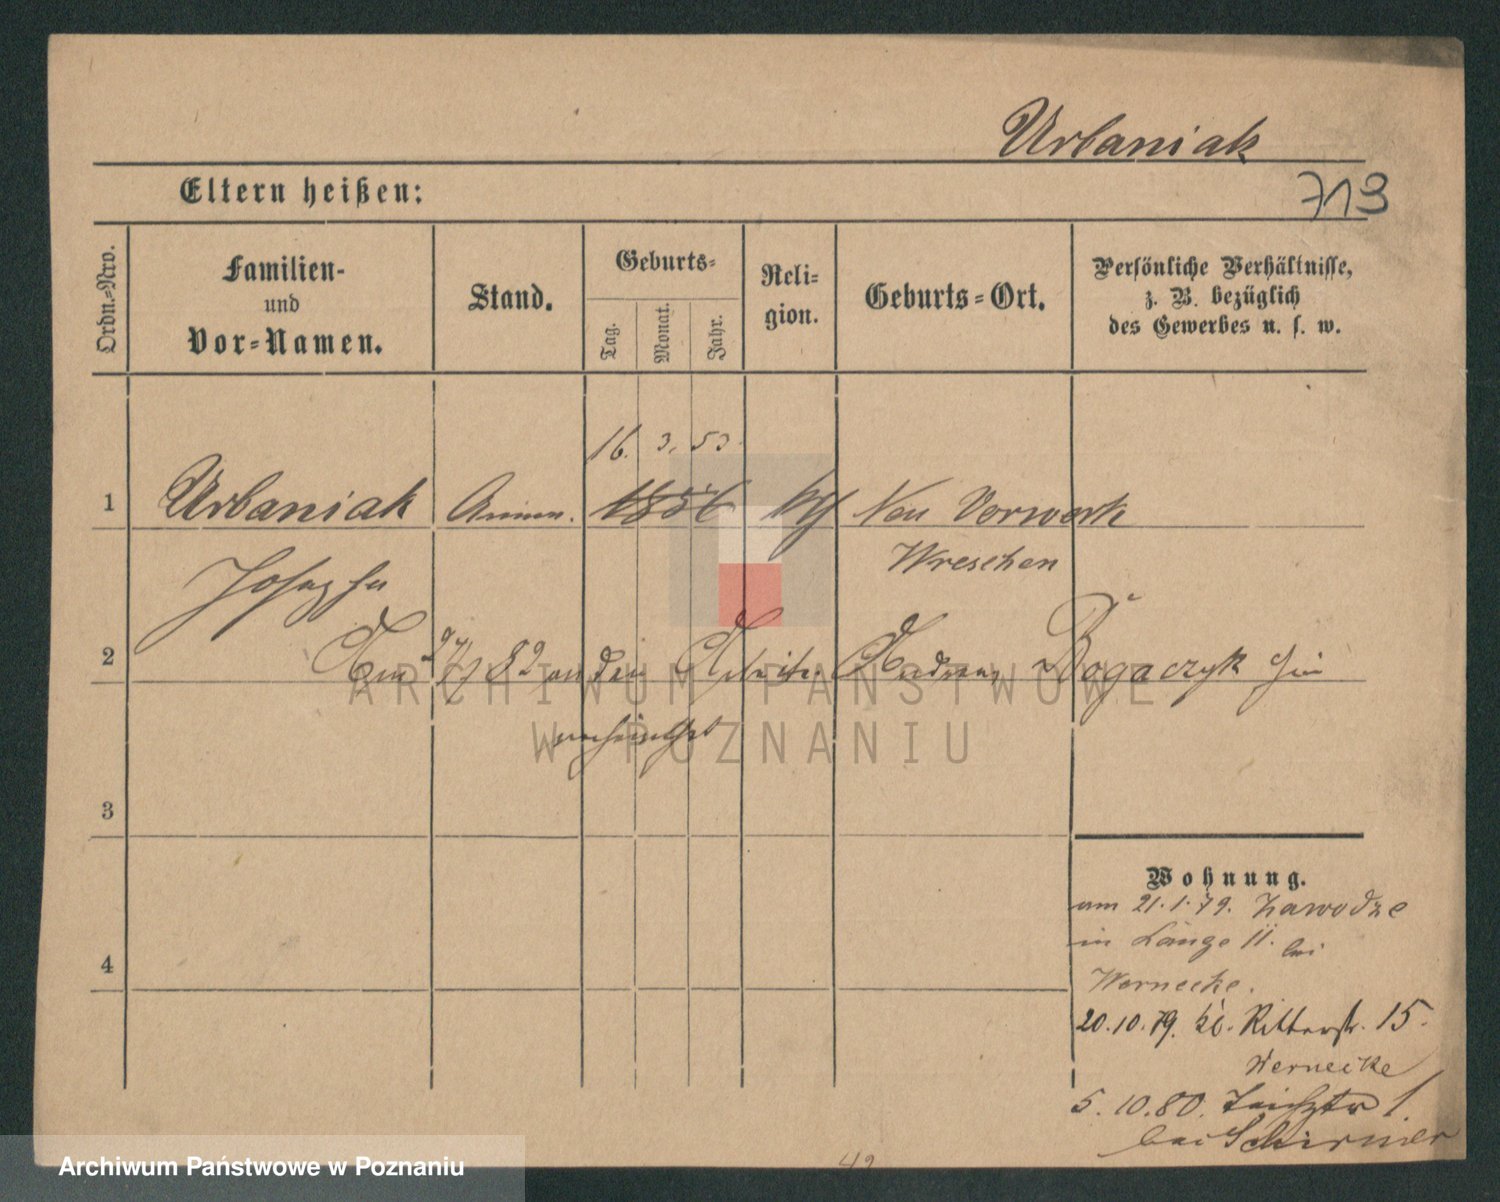 Urbaniak
713
Eltern heißen:
Ordn.-Nro.
Familien-
und
Vor-Namen.
Stand.
Geburts-
Tag.
Monat.
Jahr.
Reli-
gion.
Geburts-Ort.
Persönliche Verhältnisse,
z. B. bezüglich
des Gewerbes u. s. w.
16. 3. 53
1 Urbaniak 1856 Neu Vorwerk
Wreschen
Josepha
2 82 an den Arbeiter Andreas Bogaczyk hier
verheirathet
ARCHIWUM PAŃSTWOWE
W POZNANIU
3
4
Wohnung.
am 21.1.79. Zawodze
in Länge 11. bei
Wernecke.
20.10.79. kl. Ritterstr. 15.
Wernecke
5.10.80. Teichstr 1.
bei Schirmer
Archiwum Państwowe w Poznaniu